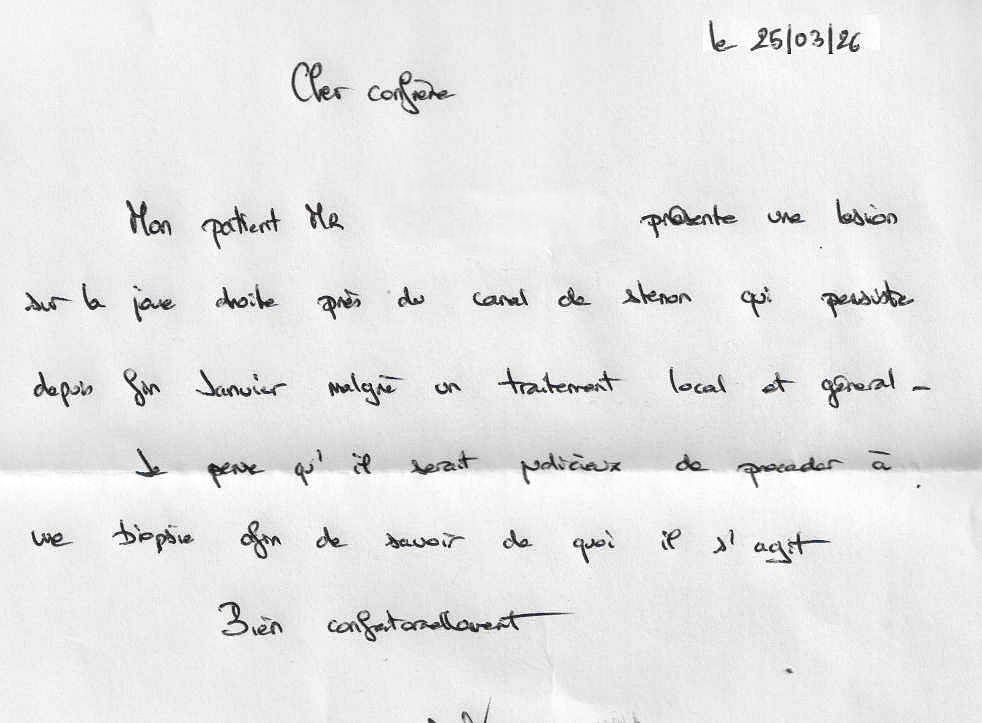 le 25/03/26
Cher confrère
Mon patient Mr présente une lesion
sur la joue droite près du canal de stenon qui persiste
depuis fin Janvier malgré un traitement local et géneral -
Je pense qu'il serait judicieux de proceder à
une biopsie afin de savoir de quoi il s'agit
Bien confraternellement